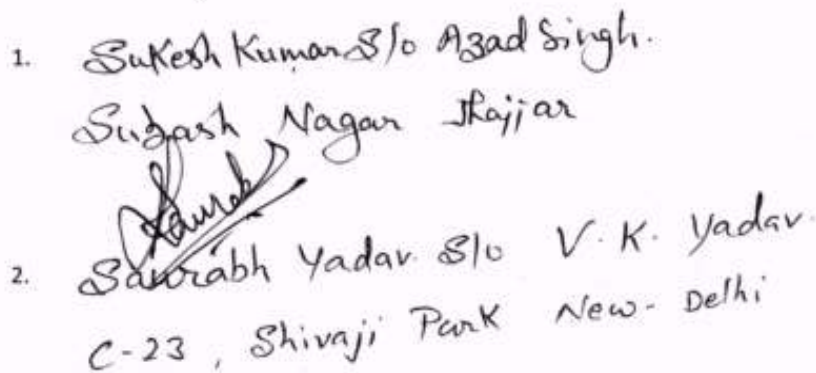 1. Sukesh Kumar S/o Azad Singh.
Subash Nagar Jhajjar
Saurabh
2. Saurabh Yadav. S/o V. K. Yadav.
C-23, Shivaji Park New-Delhi